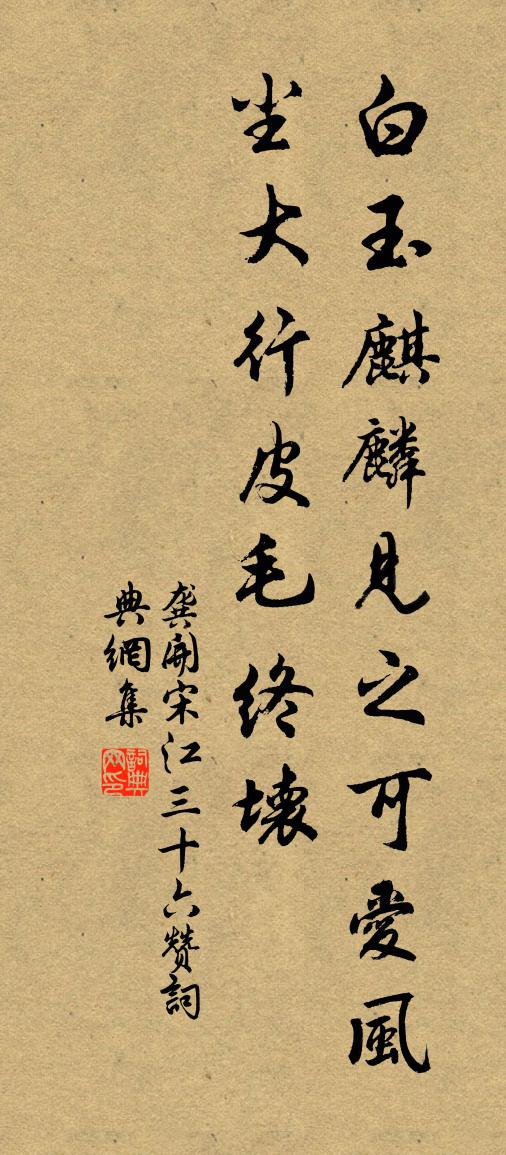 白玉麒麟見之可愛風
尘大行皮毛終壞
龔開宋江三十六赞詞
典網集
詞典網印